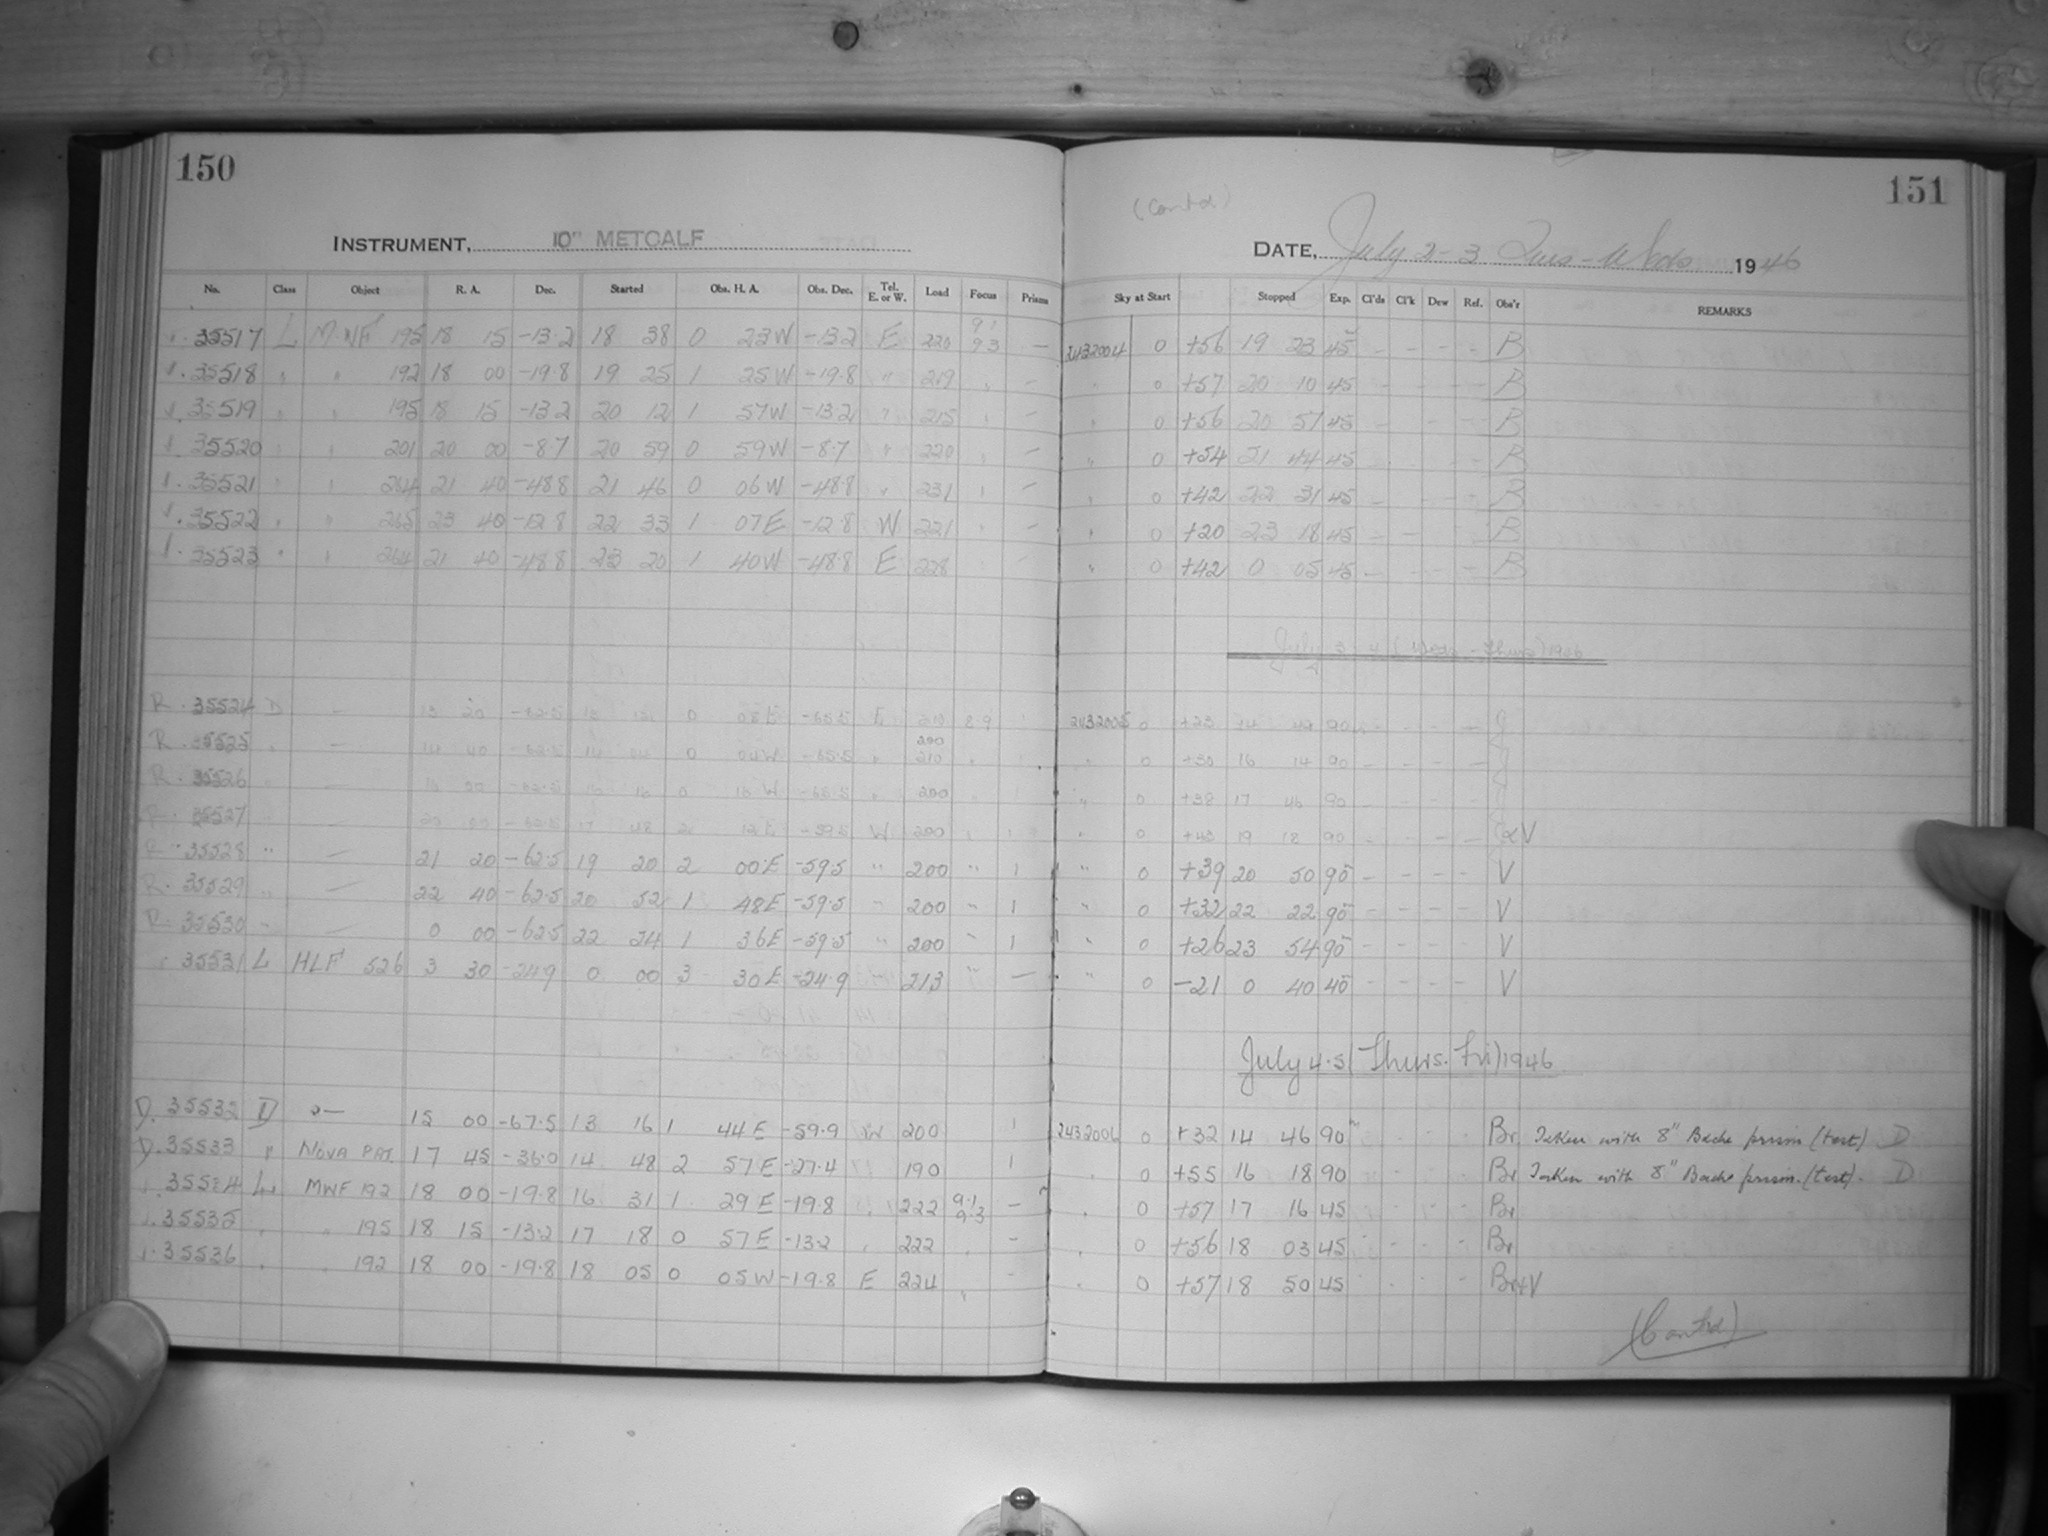 150
151
(Contd)
INSTRUMENT, 10" METCALF
DATE, July 2-3 Tues-Weds 1946
No. Class Object R. A. Dec. Started Obs. H. A. Obs. Dec. Tel. E. or W. Load Focus Prisms Sky at Start Stopped Exp. Cl'ds Cl'k Dew Ref. Obs'r REMARKS
35517 L MWF 195 18 15 -13.2 18 38 0 23W -13.2 E 220 9.1 9.3 — 2432004 0 +56 19 23 45 - - - - B
35518 " " 192 18 00 -19.8 19 25 1 25W -19.8 " 219 " — " 0 +57 20 10 45 - - - - B
35519 " " 195 18 15 -13.2 20 12 1 57W -13.2 " 215 " — " 0 +56 20 57 45 - - - - B
35520 " " 201 20 00 -8.7 20 59 0 59W -8.7 " 220 " — " 0 +54 21 44 45 - - - - B
35521 " " 264 21 40 -48.8 21 46 0 06W -48.8 " 231 " — " 0 +42 22 31 45 - - - - B
35522 " " 265 23 40 -12.8 22 33 1 07E -12.8 W 221 " — " 0 +20 23 18 45 - - - - B
35523 " " 264 21 40 -48.8 23 20 1 40W -48.8 E 228 " — " 0 +42 0 05 45 - - - - B
July 3-4 (Weds-Thurs) 1946
R. 35524 D — 13 20 -62.5 0 E 210 8.9 2432005 0 +23 14 90 - - - -
R. 35525 " — 14 40 -62.5 14 44 0 04W " 200 210 " 0 +30 16 14 90 - - - -
R. 35526 " — -62.5 16 16 0 16W " 200 " 0 +38 17 46 90 - - - -
R. 35527 " — 20 00 -62.5 17 48 2 12E -59.5 W 200 " 1 " 0 +43 19 18 90 - - - -
R. 35528 " — 21 20 -62.5 19 20 2 00E -59.5 " 200 " 1 " 0 +39 20 50 90 - - - - V
R. 35529 " — 22 40 -62.5 20 52 1 48E -59.5 " 200 " 1 " 0 +32 22 22 90 - - - - V
R. 35530 " — 0 00 -62.5 22 24 1 36E -59.5 " 200 " 1 " 0 +26 23 54 90 - - - - V
35531 L HLF 526 3 30 -24.9 0 00 3 30E -24.9 213 " — " 0 -21 0 40 40 - - - - V
July 4-5 (Thurs. Fri) 1946
D. 35532 D — 15 00 -67.5 13 16 1 44E -59.9 W 200 1 2432006 0 +32 14 46 90 - - - - Br Taken with 8" Bache prism (test) D
D. 35533 " NOVA PAI. 17 45 -36.0 14 48 2 57E -27.4 " 190 1 " 0 +55 16 18 90 - - - - Br Taken with 8" Bache prism. (test). D
35534 L MWF 192 18 00 -19.8 16 31 1 29E -19.8 " 222 9.1 9.3 — " 0 +57 17 16 45 - - - - Br
35535 " " 195 18 15 -13.2 17 18 0 57E -13.2 " 222 " — " 0 +56 18 03 45 - - - - Br
35536 " " 192 18 00 -19.8 18 05 0 05W -19.8 E 224 " — " 0 +57 18 50 45 - - - - Br+V
(Contd)